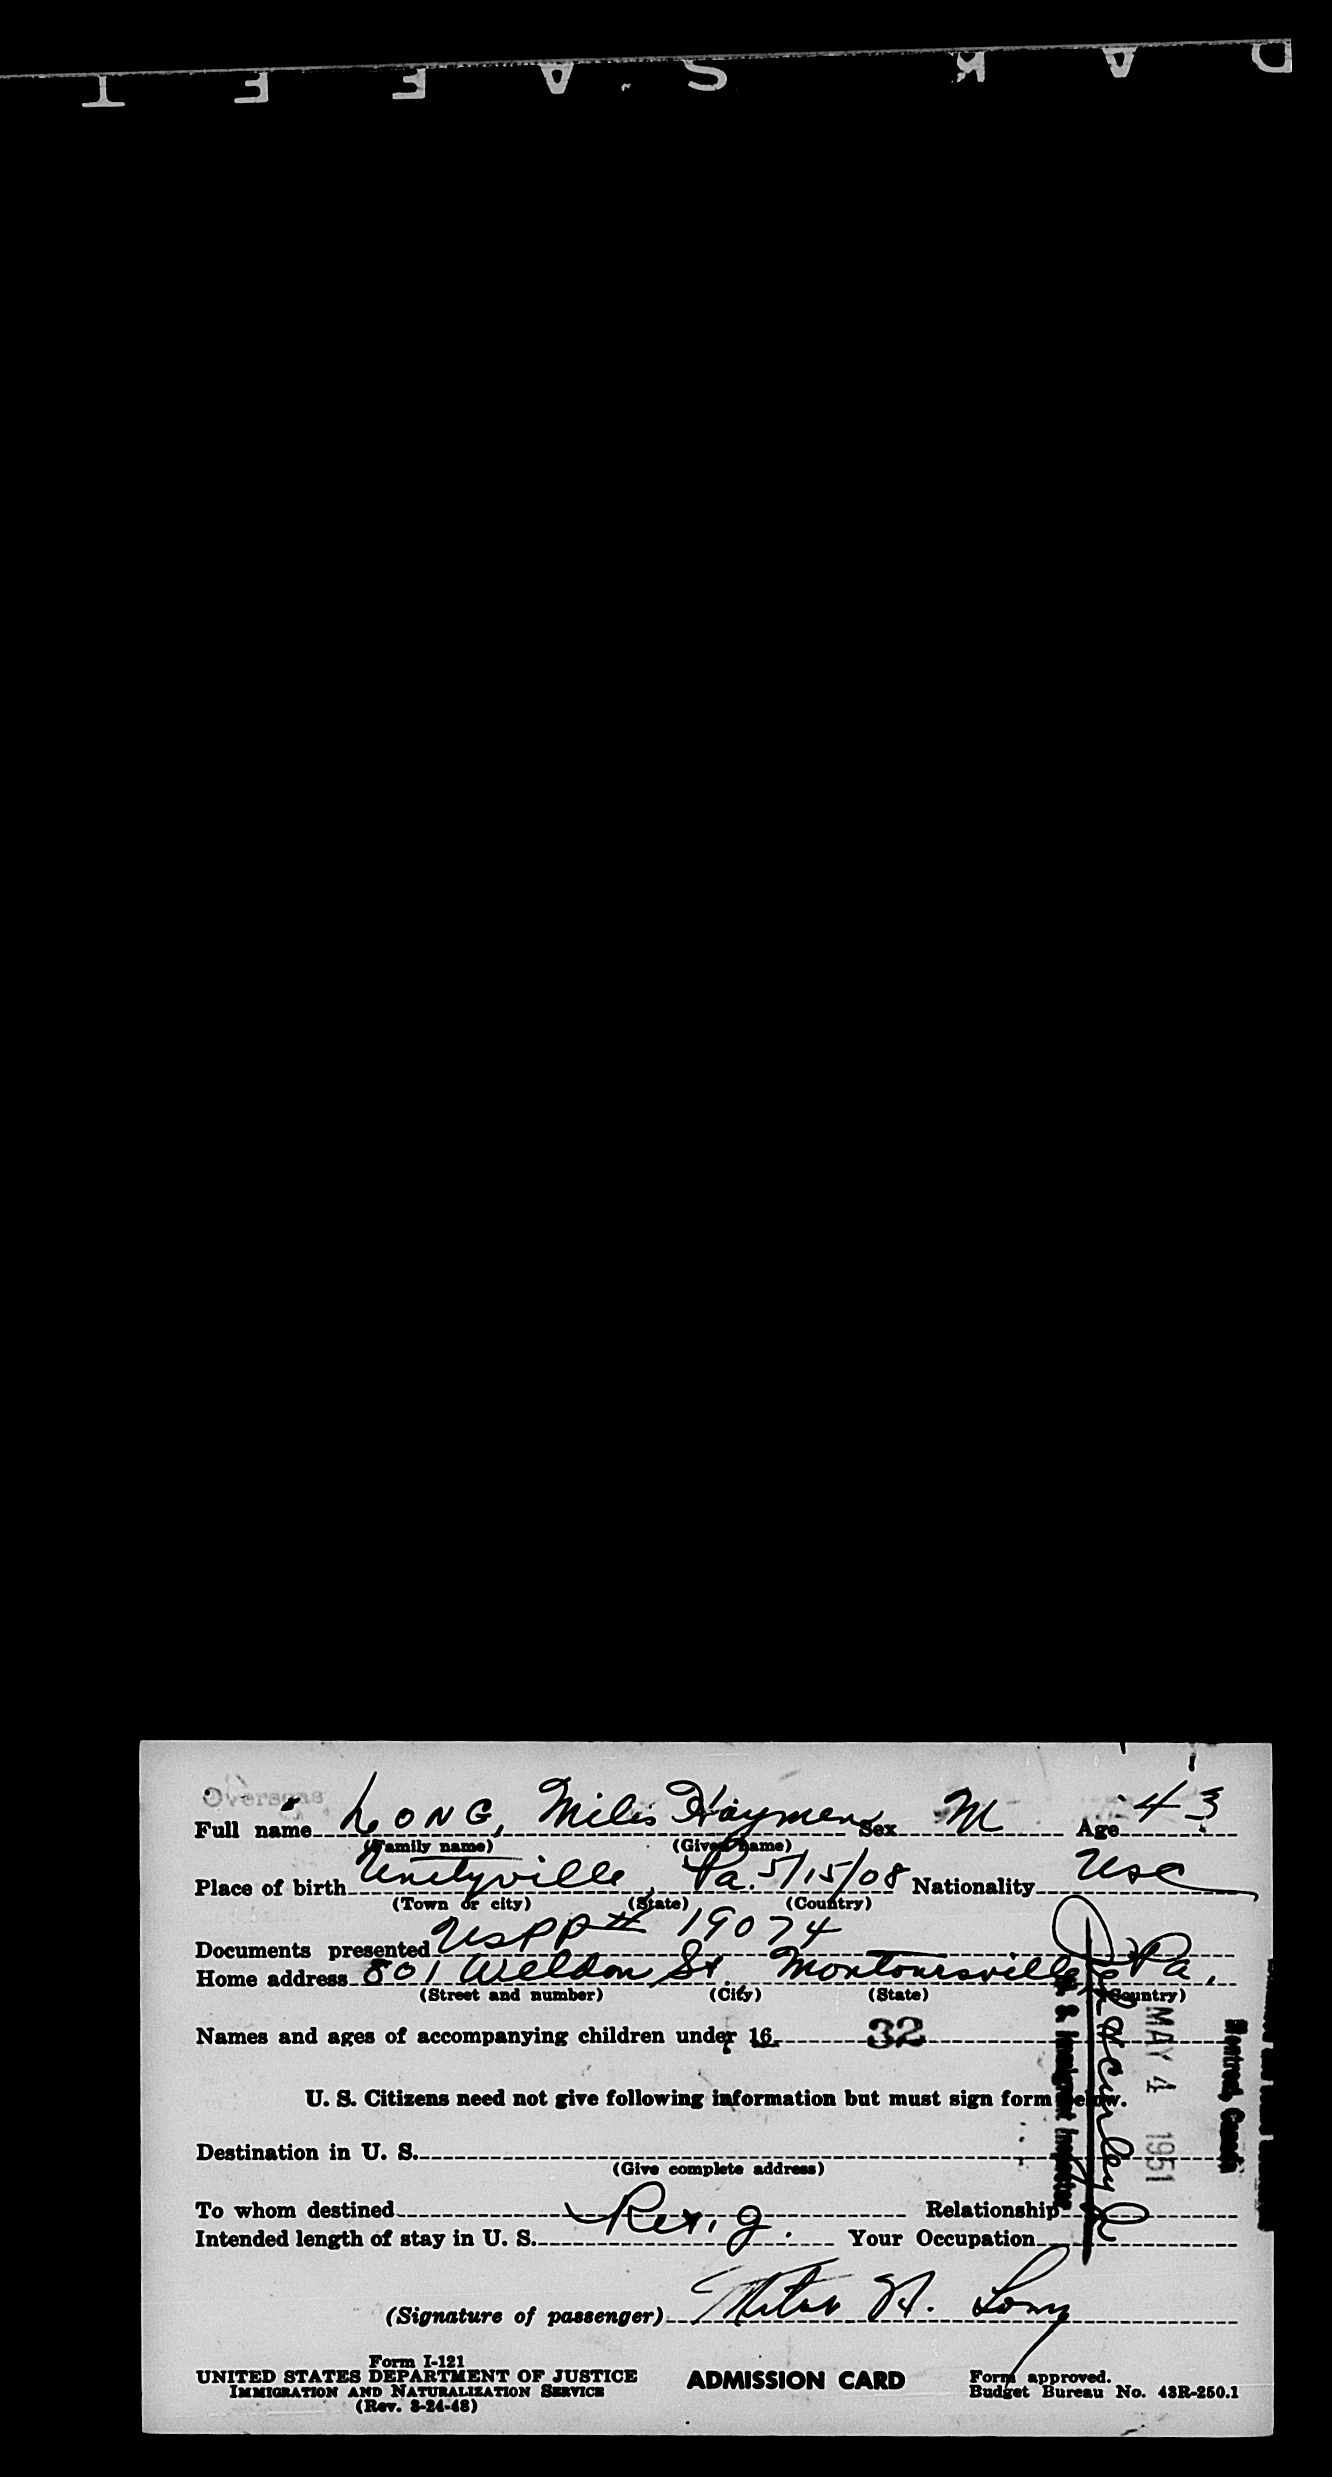 DAK S.AFEI
Overseas
Full name LONG, Miles Haymen Sex M Age 43
(Family name) (Given name)
Place of birth Unityville, Pa. 5/15/08 Nationality USC
(Town or city) (State) (Country)
Documents presented USPP# 19074
Home address 801 Weldon St. Montoursville, Pa.
(Street and number) (City) (State) (Country)
Names and ages of accompanying children under 16 32
U. S. Citizens need not give following information but must sign form below.
Destination in U. S.
(Give complete address)
To whom destined Relationship
Intended length of stay in U. S. Your Occupation
(Signature of passenger) Miles H. Long
Form I-121
UNITED STATES DEPARTMENT OF JUSTICE
IMMIGRATION AND NATURALIZATION SERVICE
(Rev. 8-24-48)
ADMISSION CARD
Form approved.
Budget Bureau No. 43R-250.1
Immigrant Inspector
MAY 4 1951
Montreal, Canada